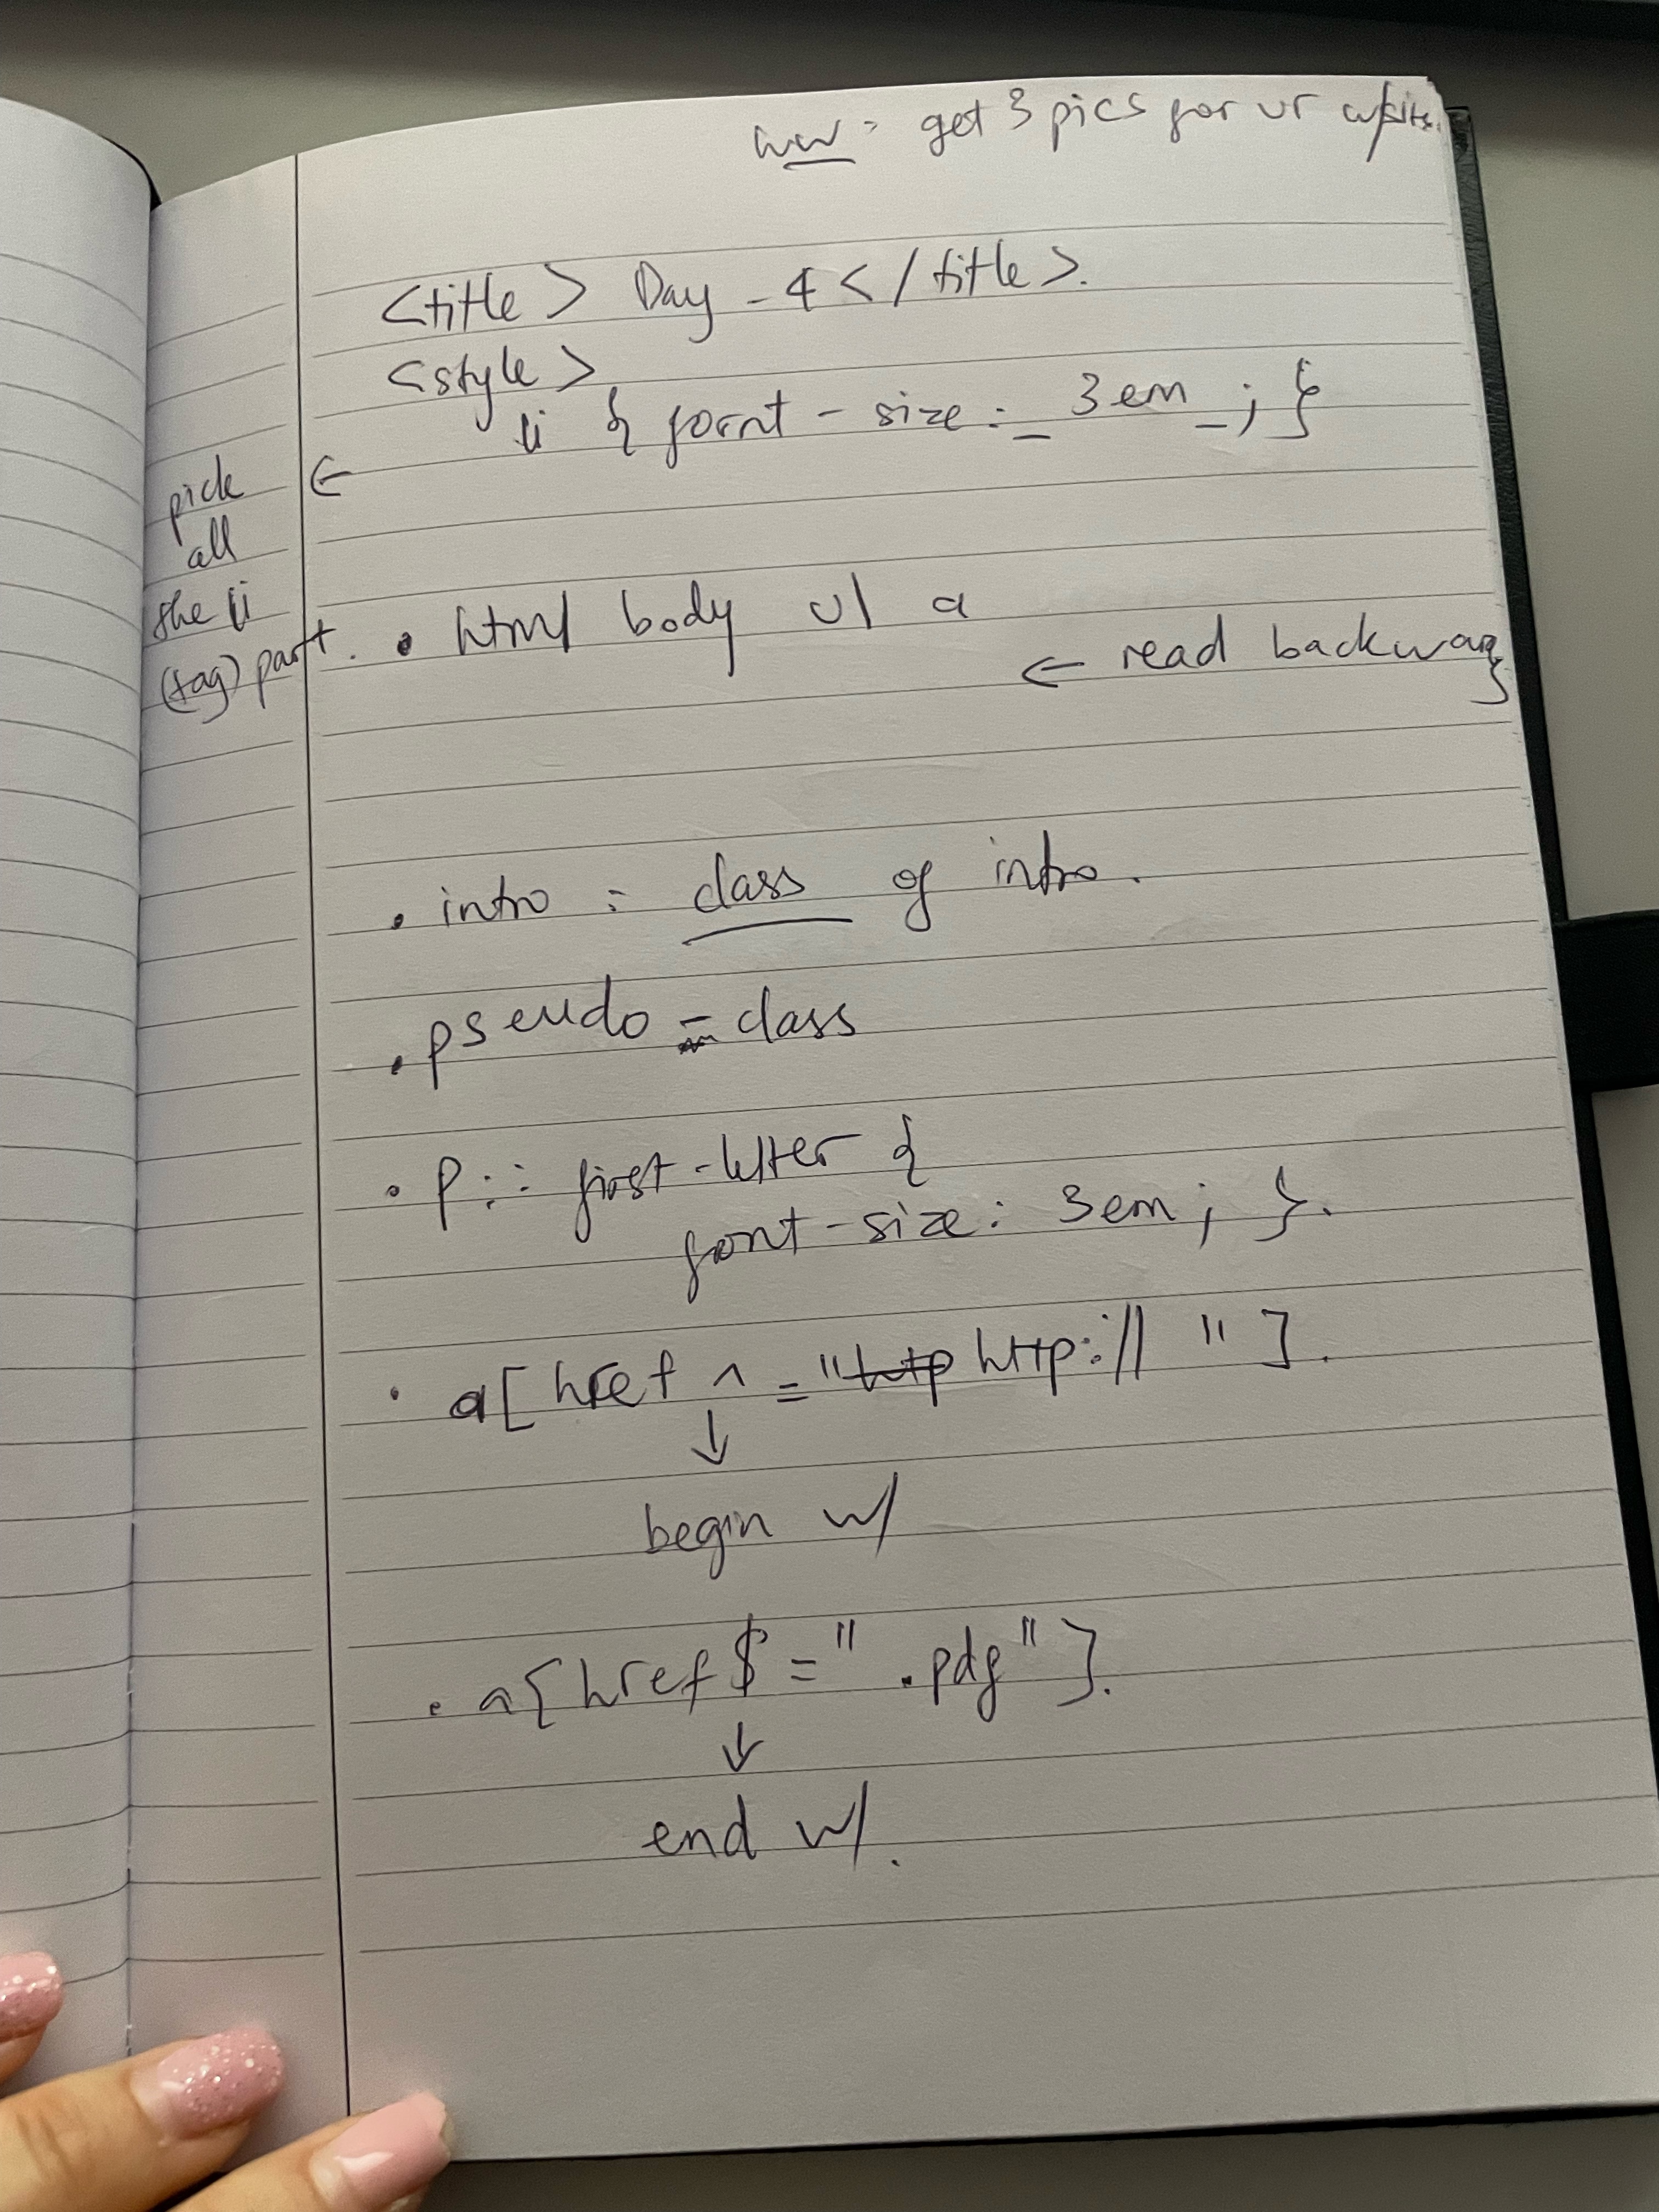 hw : get 3 pics for ur w/site.
<title> Day - 4 </title>.
<style>
li { font - size : _ 3em _ ; }
pick ←
all
the li
(tag) part.
• html body ul a
← read backwards
. intro : class of intro.
. pseudo - class
• p :: first - letter {
font - size : 3em ; }.
• a[ href ^ = "http http:// " ].
↓
begin w/
. a[ href $ = " .pdf " ].
↓
end w/.